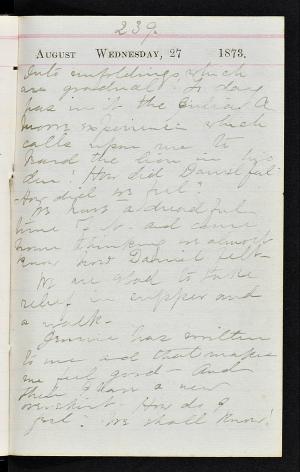 239.
August Wednesday, 27 1873.
Into unfoldings, which
are gradual. To day
has in it the
experience which
calls upon me to
beard the lion in his
den! How did Daniel feel
How did we feel?
We have a dreadful
time of it and come
home thinking we almost
know how Daniel felt.
We are glad to take
relief in supper and
a walk.
Jennie has written
to me and that makes
me feel good. And
then I have a new
overskirt. How do I
feel? We shall know!